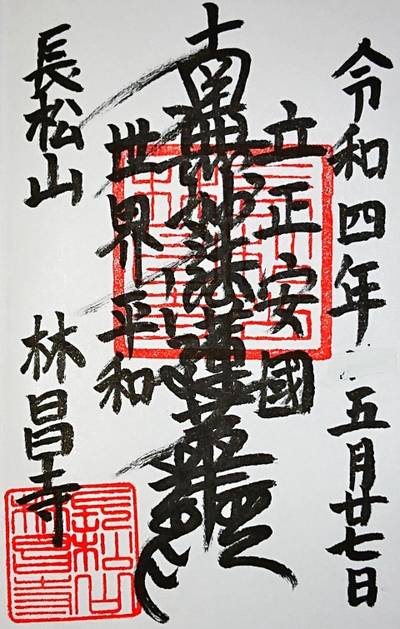 令和四年 五月廿七日
立正安國
南無妙法蓮華経
世界平和
長松山 林昌寺
長松山林昌寺